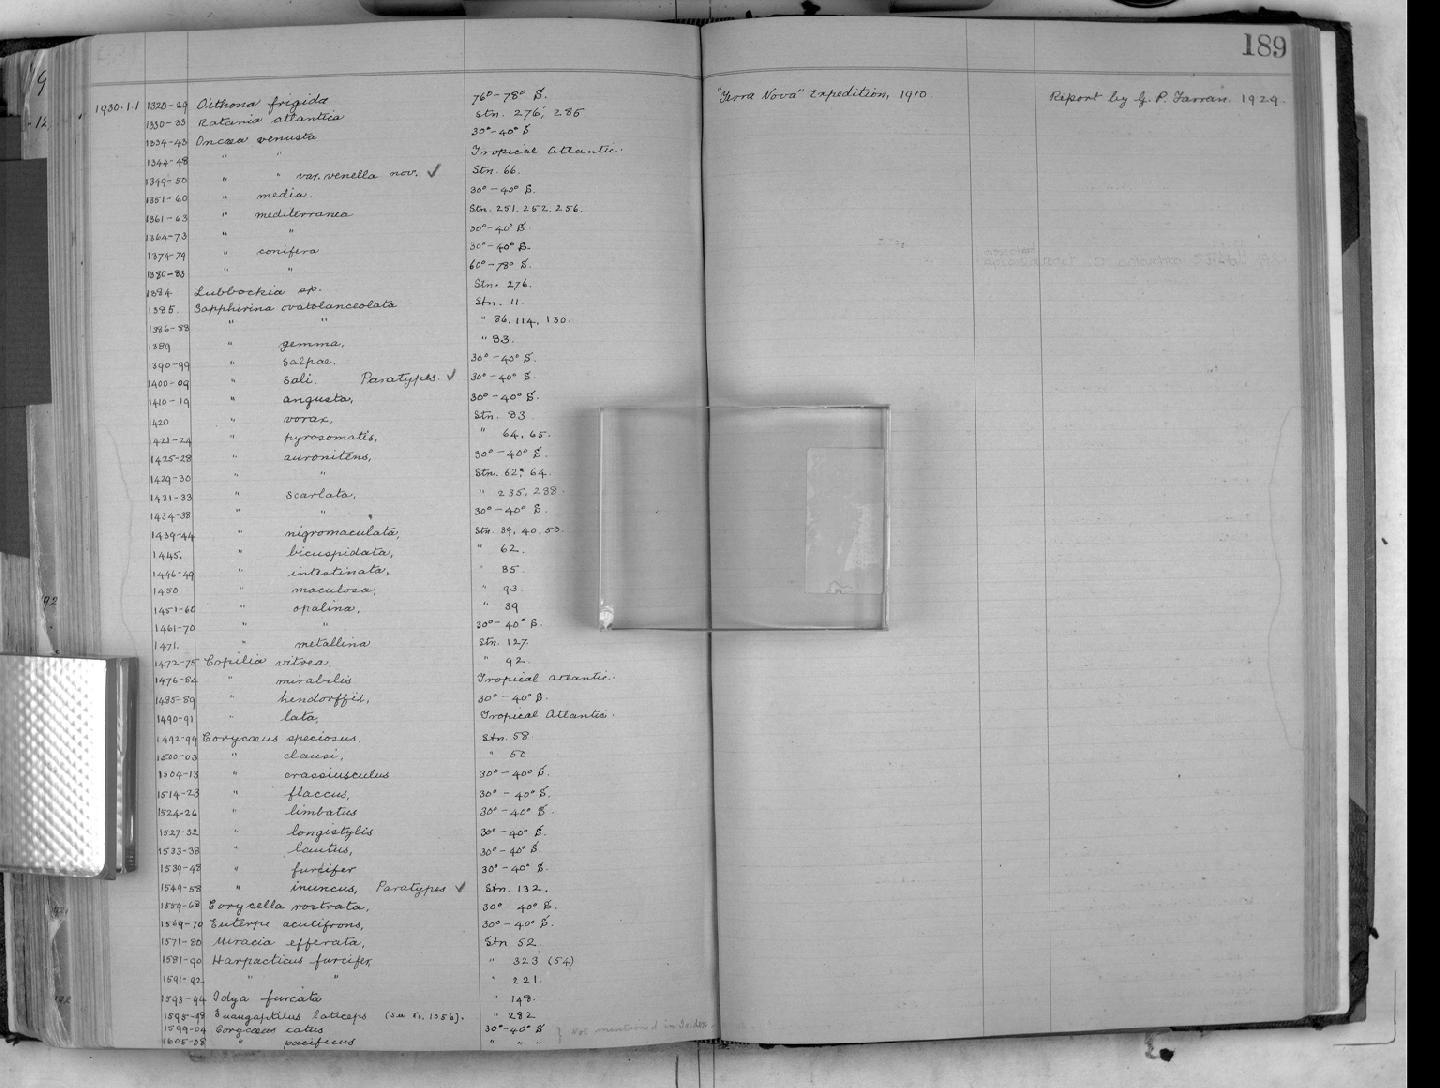 189
1930.1.1 1320-29 Oithona frigida 76°-78° S. "Terra Nova" Expedition, 1910. Report by G. P. Farran. 1929.
1330-33 Ratania atlantica Stn. 276, 285
1334-43 Oncaea venusta 30°-40° S
1344-48 " " Tropical Atlantic.
1349-50 " " var. venella nov. ✓ Stn. 66.
1351-60 " media. 30°-40° S.
1361-63 " mediterranea Stn. 251. 252. 256.
1364-73 " " 30°-40° S.
1374-79 " conifera 30°-40° S.
1380-83 " " 60°-78° S.
1384 Lubbockia sp. Stn. 276.
1385. Sapphirina ovatolanceolata Stn. 11.
1386-88 " " " 36, 114, 130.
389 " gemma, " 93.
390-99 " salpae. 30°-40° S.
1400-09 " sali. Paratypes. ✓ 30°-40° S.
1410-19 " angusta, 30°-40° S.
420 " vorax, Stn. 93.
421-24 " pyrosomatis, " 64, 65.
1425-28 " auronitens, 30°-40° S.
1429-30 " " Stn. 62, 64.
1431-33 " scarlata, " 235, 238.
1434-38 " " 30°-40° S.
1439-44 " nigromaculata, Stn. 39, 40. 53.
1445. " bicuspidata, " 62.
1446-49 " intestinata, " 85.
1450 " maculosa, " 93
1451-60 " opalina, " 39
1461-70 " " 30°-40° S.
1471. " metallina Stn. 127.
1472-75 Copilia vitrea " 92.
1476-84 " mirabilis Tropical Atlantic.
1485-89 " hendorffii, 30°-40° S.
1490-91 " lata, Tropical Atlantic.
1492-99 Corycaeus speciosus. Stn. 58.
1500-03 " clausi, " 50
1504-13 " crassiusculus 30°-40° S.
1514-23 " flaccus, 30°-40° S.
1524-26 " limbatus 30°-40° S.
1527-32 " longistylis 30°-40° S.
1533-38 " lautus, 30°-40° S.
1539-48 " furcifer 30°-40° S.
1549-58 " inuncus, Paratypes ✓ Stn. 132.
1559-68 Corycella rostrata, 30° 40° S.
1569-70 Euterpe acutifrons, 30°-40° S.
1571-80 Miracia efferata, Stn 52.
1581-90 Harpacticus furcifer, " 323 (54)
1591-92. " " " 221.
1593-94 Idya furcata " 148.
1595-98 Euaugaptilus laticeps " 282
1599-04 Corycaeus catus 30°-40° S } Not mentioned in Index.
1605-38 " pacificus " " "